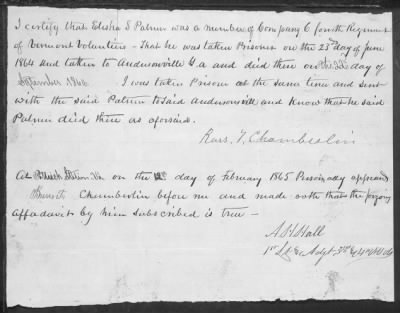 I certify that Elisha S Palmer was a member of Company C fourth Regiment
of Vermont Volunteers - That he was taken Prisoner on the 23d day of June
1864 and taken to Andersonville G.a and died there on the 22 day of
September 1864. I was taken Prisoner at the same time and sent
with the said Palmer to said Andersonville and Know that he said
Palmer died there as aforsaid.
Chamberlin
At Station Va on the day of February 1865 Personaly appeard
Chamberlin before me and made oath that the forgoing
affadavit by him subscribed is true -
A H Hall
1st Lt & Adgt